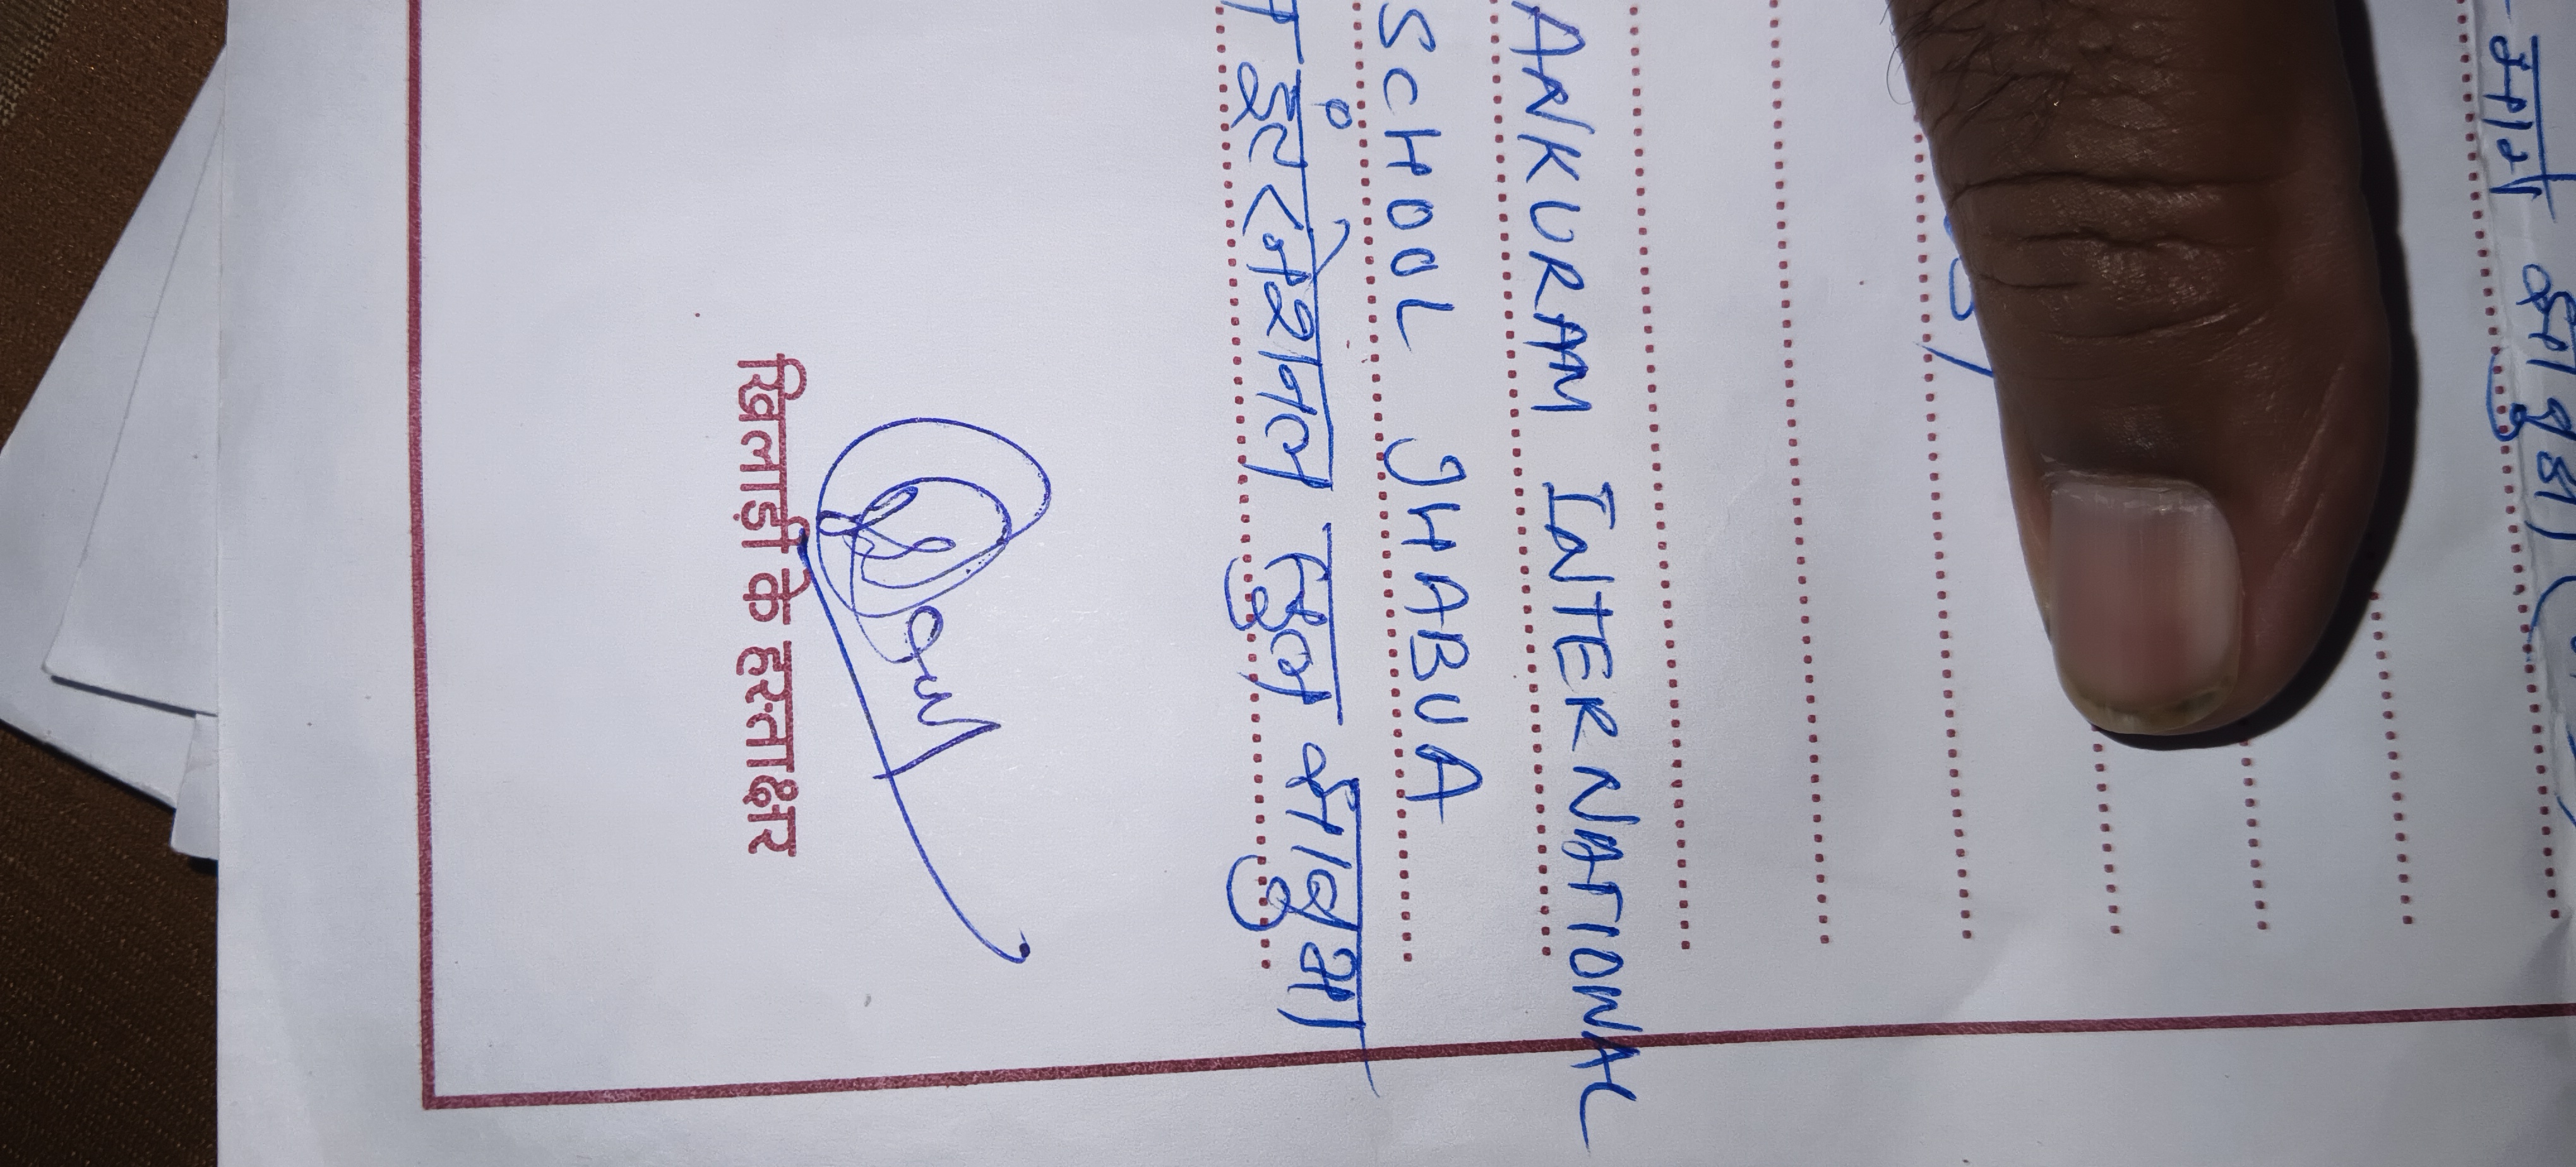 झाबुआ
ANKURAM INTERNATIONAL
SCHOOL JHABUA
इंटरनेशनल स्कुल झाबुआ
खिलाड़ी के हस्ताक्षर